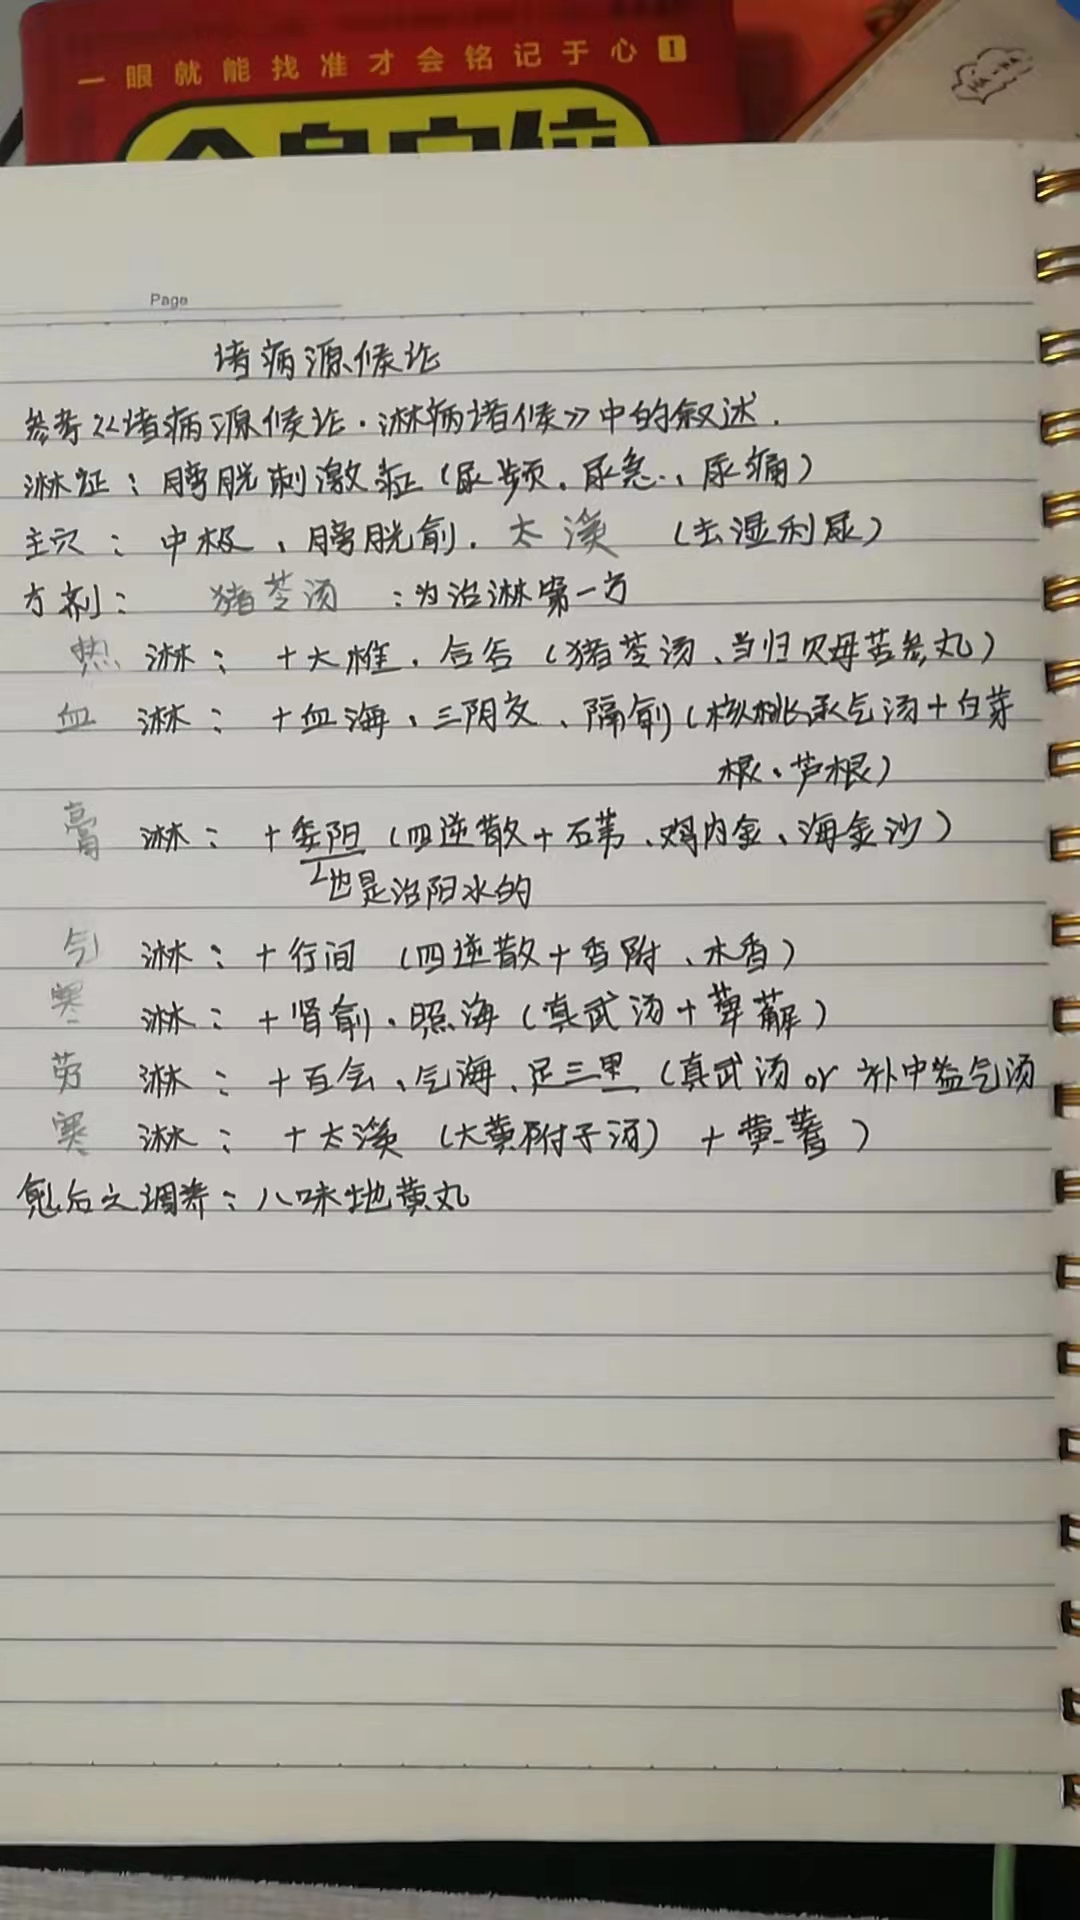 一眼就能找准才会铭记于心1
HA-HA
Page
诸病源候论
参考《诸病源候论·淋病诸候》中的叙述.
淋症：膀胱刺激症（尿频、尿急、尿痛）
主穴：中极、膀胱俞、太溪（去湿利尿）
方剂：猪苓汤：为治淋第一方
热淋：+大椎、合谷（猪苓汤、当归贝母苦参丸）
血淋：+血海、三阴交、隔俞（核桃承气汤+白芽
根、芦根）
膏淋：+委阳（四逆散+石苇、鸡内金、海金沙）
也是治阳水的
气淋：+行间（四逆散+香附、木香）
寒淋：+肾俞、照海（真武汤+萆薢）
劳淋：+百会、气海、足三里（真武汤or补中益气汤
寒淋：+太溪（大黄附子汤）+黄蓍）
愈后之调养：八味地黄丸